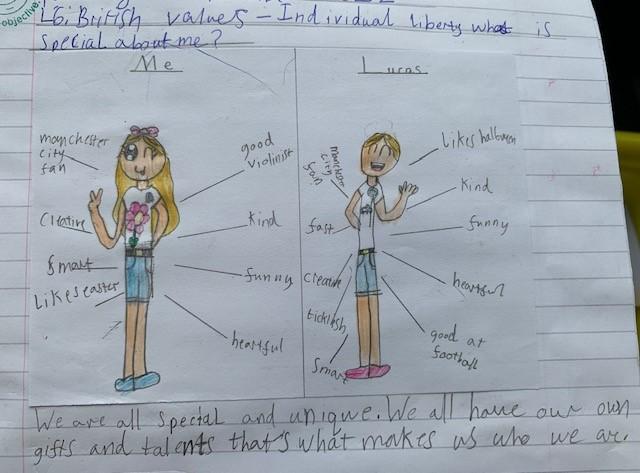 objective
L6. British values - Individual liberty what is
special about me?
Me
Lucas
manchester
city
fan
good
violinist
Creative
kind
Smart
funny
Likes easter
heartful
manchester
city
fan
Likes halloween
kind
fast
funny
creative
heartful
ticklish
good at
football
Smart
We are all special and unique. We all have our own
gifts and talents that's what makes us who we are.